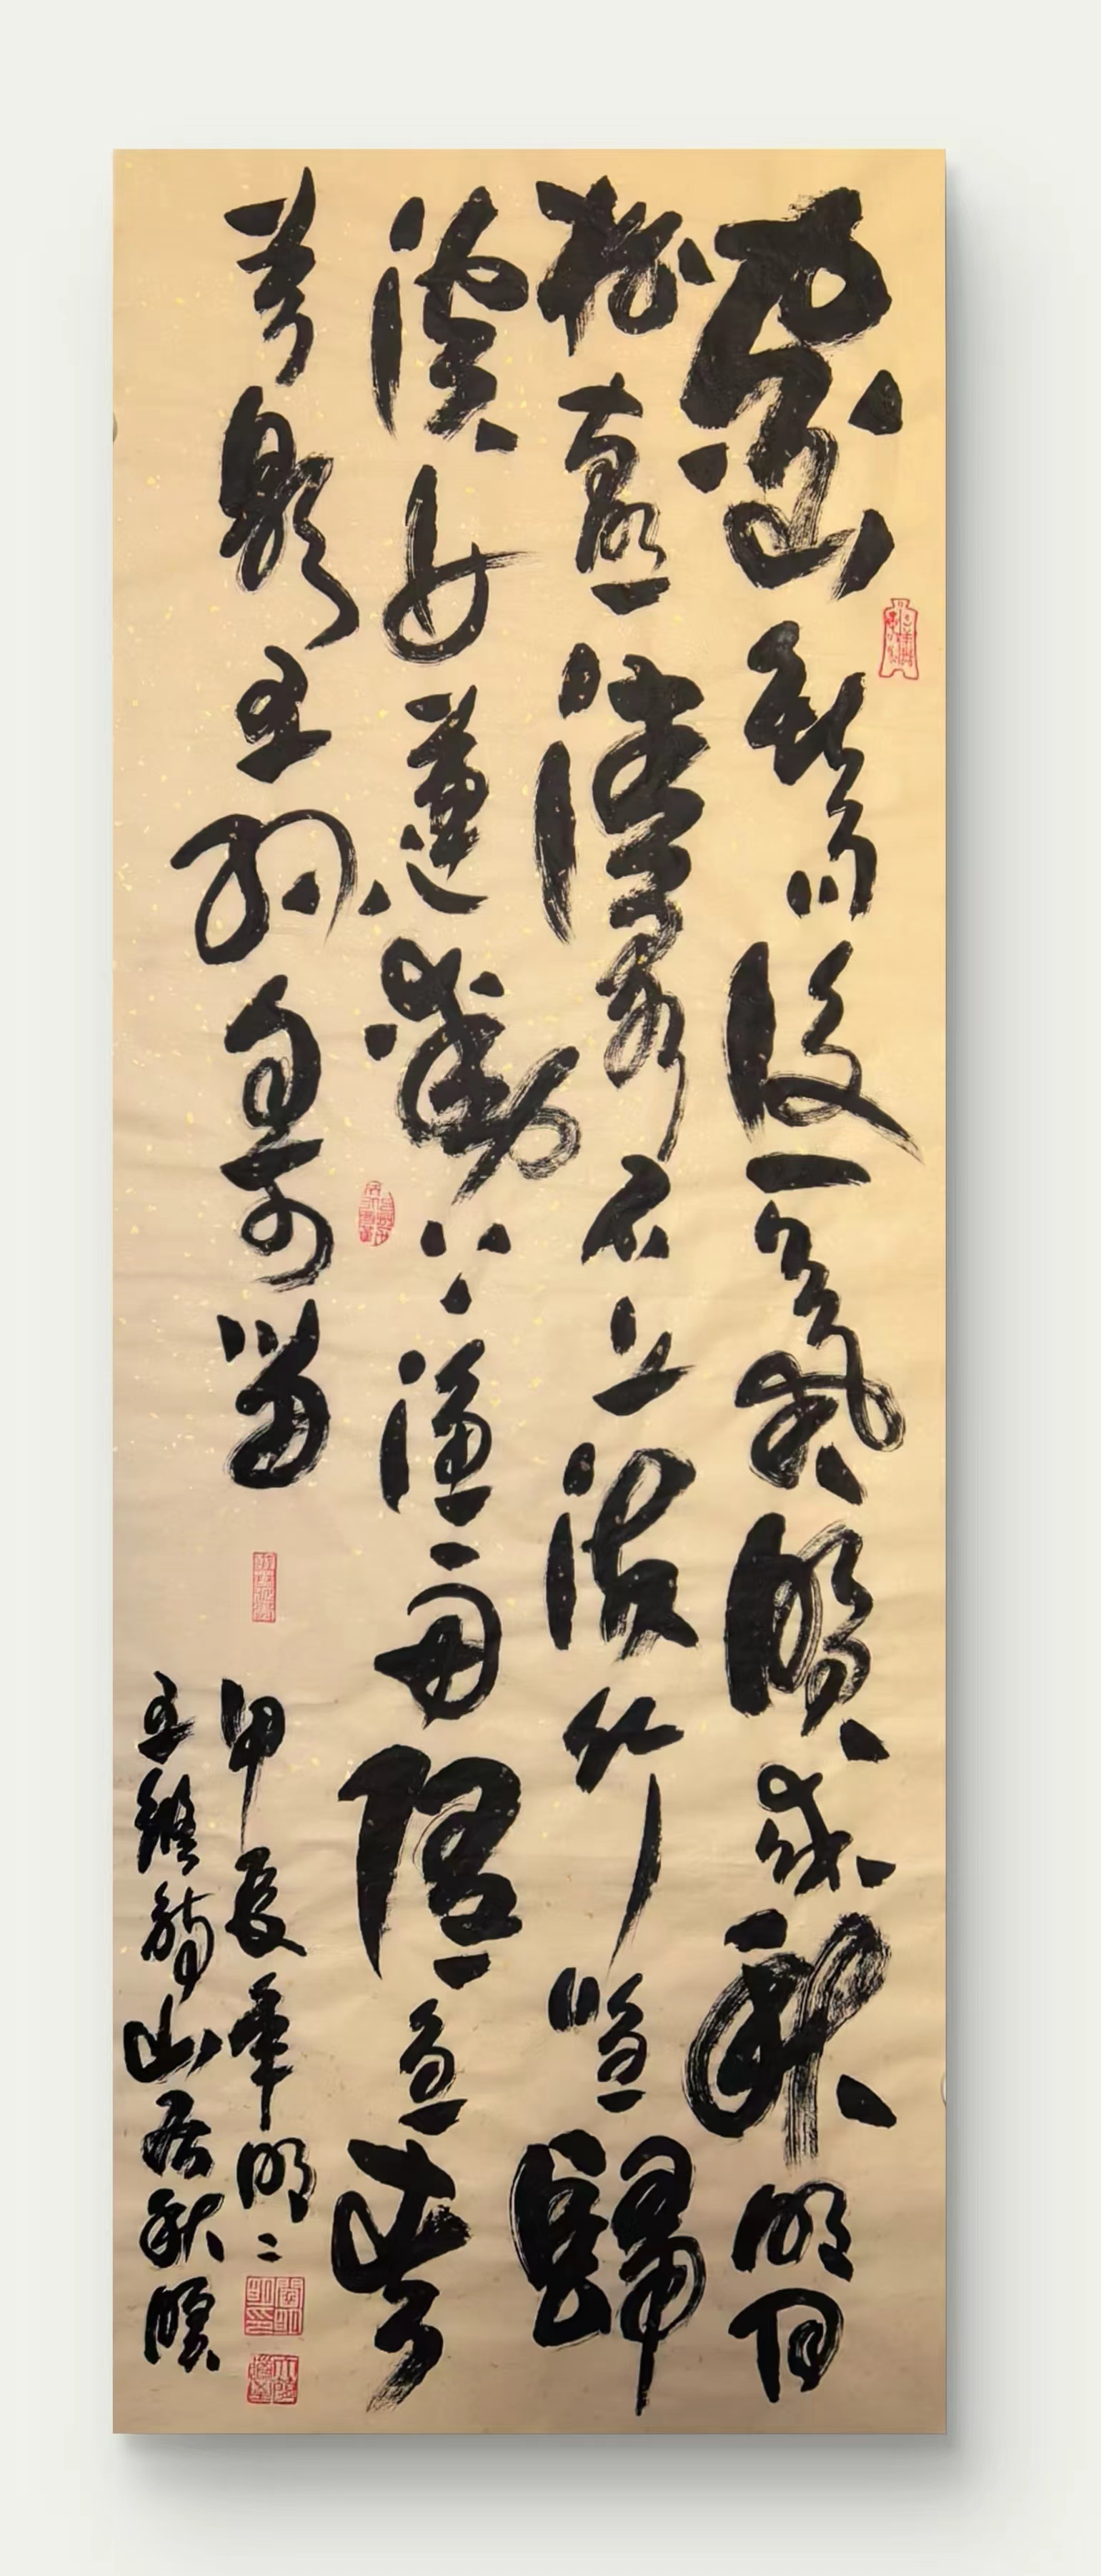 空山新雨後天氣晚来秋明月
松間照清泉石上流竹喧歸
浣女蓮動下漁舟隨意春
芳歇王孫自可留
甲辰年明二
王維詩山居秋暝